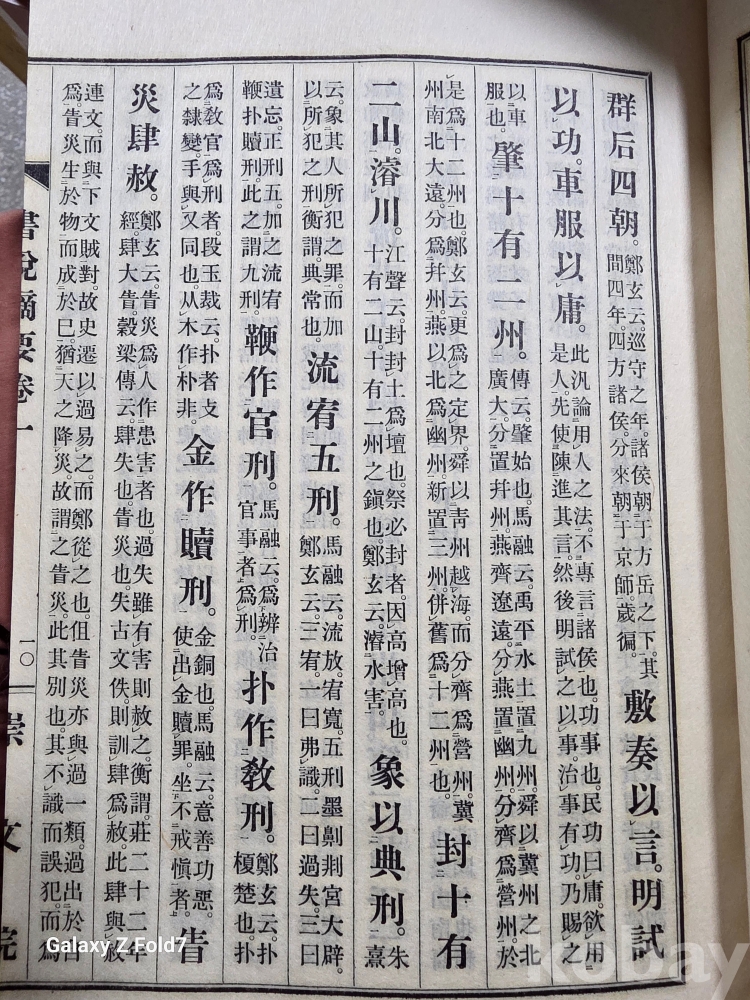 群后四朝。
鄭玄云。巡守之年。諸侯朝于方岳之下。其
間四年。四方諸侯。分來朝于京師。歲徧。
敷奏以言。明試
以功。車服以庸。
此汎論用人之法。不專言諸侯也。功事也。民功曰庸。欲用
是人。先使陳進其言。然後明試之以事。治事有功。乃賜之
以車
服也。
肇十有二州。
傳云。肇始也。馬融云。禹平水土置九州。舜以冀州之北
廣大。分置幷州。燕齊遼遠。分燕置幽州。分齊爲營州。於
是爲十二州也。鄭玄云。更爲之定界。舜以青州越海。而分齊爲營州。冀
州南北大遠。分爲幷州。燕以北爲幽州。新置三州。倂舊爲十二州也。
封十有
二山。濬川。
江聲云。封封土爲壇也。祭必封者。因高增高也。
十有二山。十有二州之鎭也。鄭玄云。濬水害。
象以典刑。
朱
熹
云。象其人所犯之罪。而加
以所犯之刑衡謂。典常也。
流宥五刑。
馬融云。流放。宥寬。五刑墨劓剕宮大辟。
鄭玄云。三宥。一曰弗識。二曰過失。三曰
遺忘。正刑五。加之流宥
鞭扑贖刑。此之謂九刑。
鞭作官刑。
馬融云。爲辨治
官事者爲刑。
扑作敎刑。
鄭玄云。扑
榎楚也。扑
爲敎官爲刑者段玉裁云。扑者攴
之隸變。手與又同也。从木作朴非。
金作贖刑。
金銅也。馬融云。意善功惡。
使出金贖罪。坐不戒愼者。
眚
災肆赦。
鄭玄云。眚災爲人作患害者也。過失雖有害則赦之。衡謂。莊二十二年
經。肆大眚。穀梁傳云。肆失也。眚災也。失古文佚。則訓肆爲赦。此肆與赦
連文。而與下文賊對。故史遷以過易之。而鄭從之也。但眚災亦與過一類。過出於自
爲。眚災生於物而成於已。猶天之降災。故謂之眚災。此其別也。其不識而誤犯。而爲
書說摘要卷一
一〇
崇文院
Galaxy Z Fold7
kobay